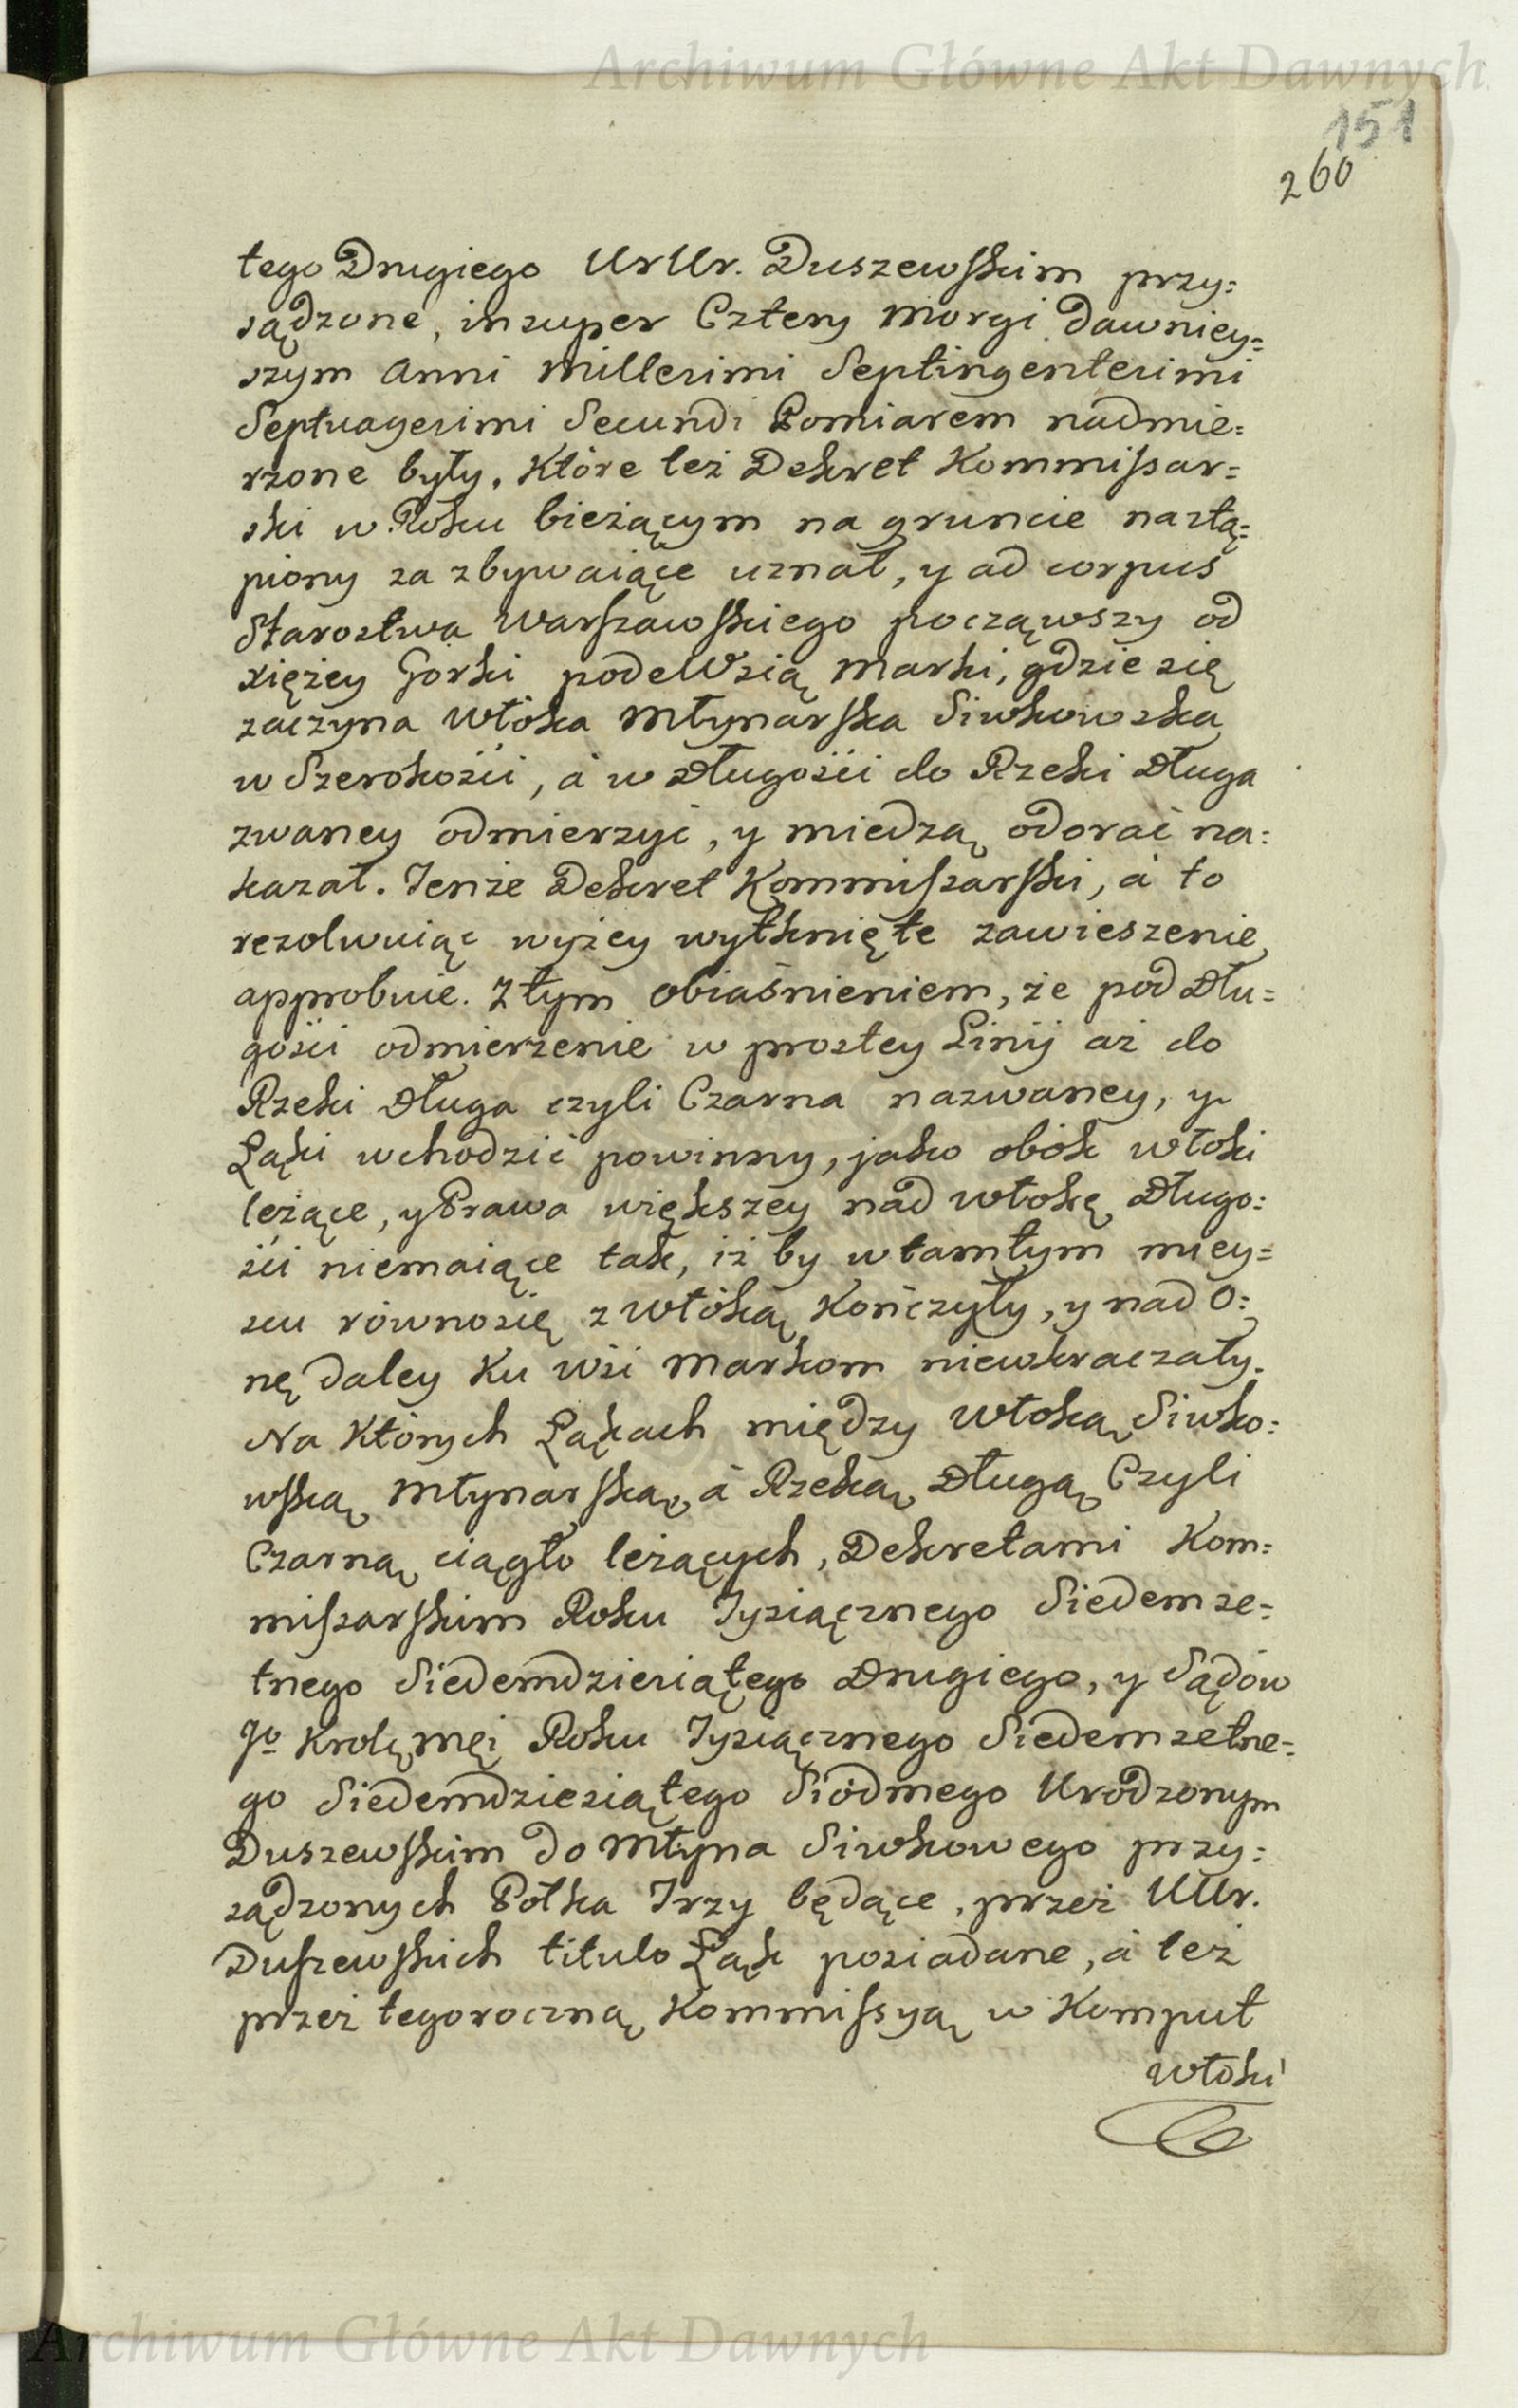 Archiwum Główne Akt Dawnych
151
260
tego Drugiego UrUr. Duszewskim przy:
sądzone, insuper Cztery Morgi dawniey=
szym Anni Millesimi Septingentesimi
Septuagesimi Secundi Pomiarem nadmie=
rzone były. Które też Dekret Kommissar=
ski w Roku bieżącym na gruncie nastą=
piony za zbywaiące uznał, y ad corpus
Starostwa Warszawskiego począwszy od
xiężey Gorki pode Wsią Marki, gdzie się
zaczyna Włoka Młynarska Siwkowska
w Szerokości, á w Długości do Rzeki Długa
zwaney odmierzyć, y miedzą odorać na:
kazał. Tenże Dekret Kommissarski, á to
rezolwuiąc wyżey wytknięte zawieszenie
approbuie. Z tym obiaśnieniem, że pod Dłu=
gości odmierzenie w prostey Linij aż do
Rzeki Długa czyli Czarna nazwaney, y
Łąki wchodzić powinny, jako obok włoki
leżące, y Prawa większey nad włokę Długo:
ści niemaiące tak, iż by w tamtym miey=
scu równo się z Włoką kończyły, y nad O:
nę daley Ku Wsi Markom niewkraczały.
Na Których Łąkach między Włoką Siwko:
wską Młynarską, á Rzeką Długą Czyli
Czarną ciągło leżących, Dekretami Kom=
missarskim Roku Tysiącznego Siedemse=
tnego Siedemdziesiątego Drugiego, y Sądów
Jo Krolę Męi Roku Tysiącznego Siedemsetne=
go Siedemdziesiątego Siodmego Urodzonym
Duszewskim do Młyna Siwkowego przy:
sądzonych Polka Trzy będące, przez UUr.
Duszewskich titulo Łąk posiadane, á też
przez tegoroczną Kommissyą w Komput
włoki
Archiwum Główne Akt Dawnych